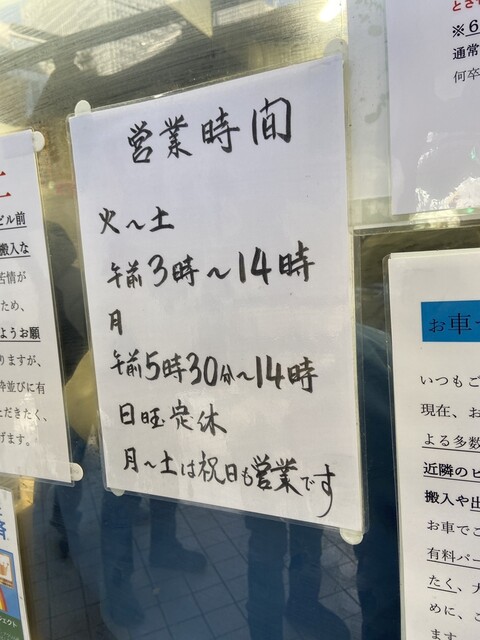 営業時間
火～土
午前3時～14時
月
午前5時30分～14時
日曜定休
月～土は祝日も営業です
とさせ
※6
通常
何卒
ビル前
搬入な
苦情が
ため、
ようお願
りますが、
並びに有
ただきたく、
げます。
お車
いつもご
現在、お
よる多数
近隣のビ
搬入や出
お車でご
有料パー
たく、
めに、こ
ます